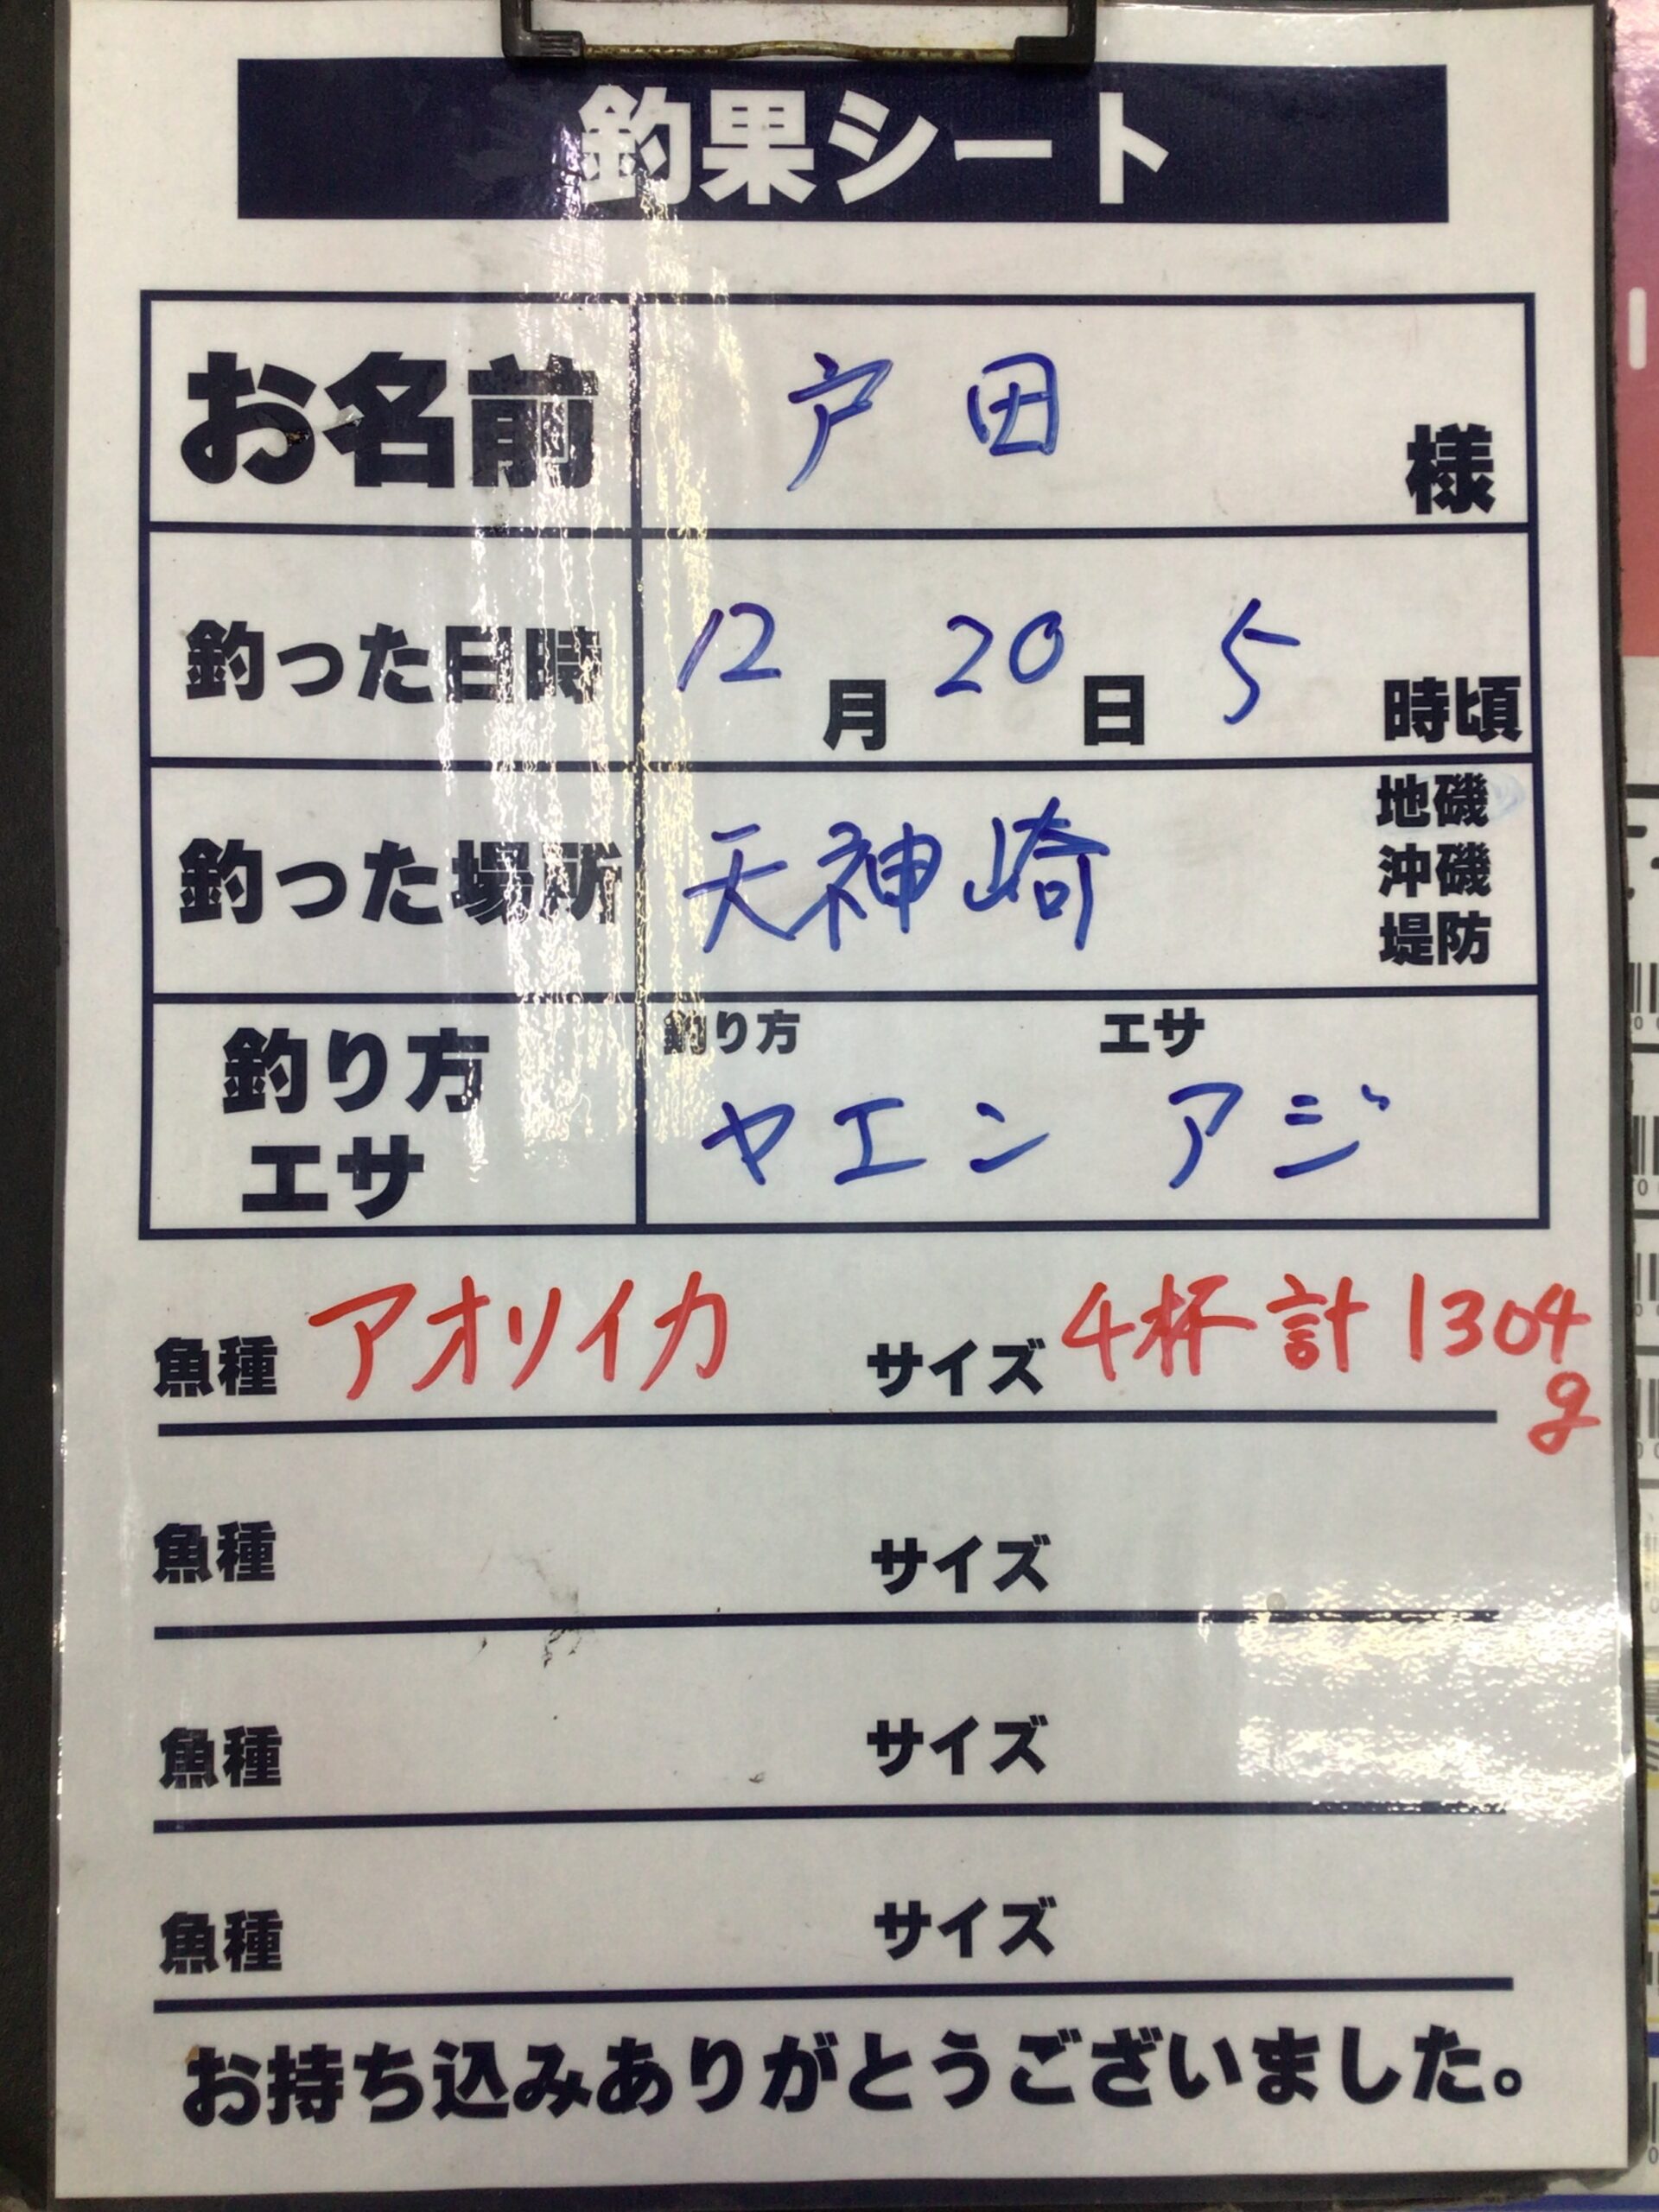 釣果シート
お名前 戸田 様
釣った日時 12月20日 5時頃
釣った場所 天神崎 地磯
沖磯
堤防
釣り方 エサ
釣り方 ヤエン アジ
エサ
魚種 アオリイカ サイズ 4杯計1304
g
魚種 サイズ
魚種 サイズ
魚種 サイズ
お持ち込みありがとうございました。